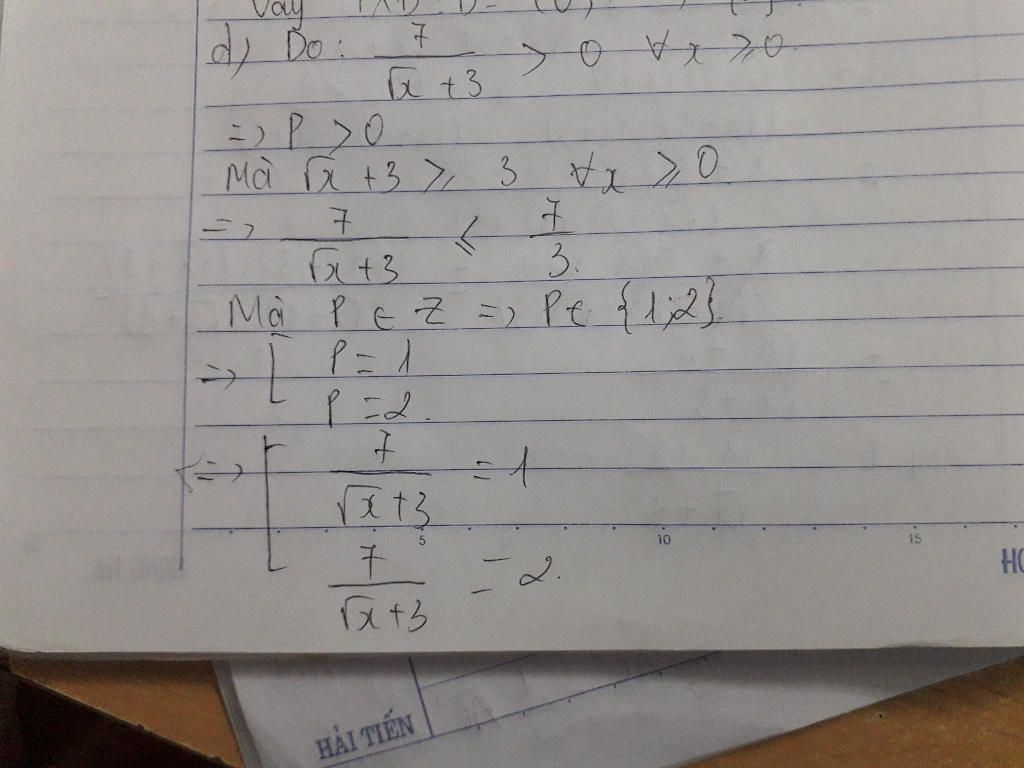 Vậy
d) Do: 7/(√x + 3) > 0 ∀x ≥ 0.
=> P > 0
Mà √x + 3 ≥ 3 ∀x ≥ 0
=> 7/(√x + 3) ≤ 7/3.
Mà P ∈ Z => P ∈ {1;2}
=> [ P = 1
P = 2.
<=> [ 7/(√x + 3) = 1
5 10 15
7/(√x + 3) = 2.
HẢI TIẾN